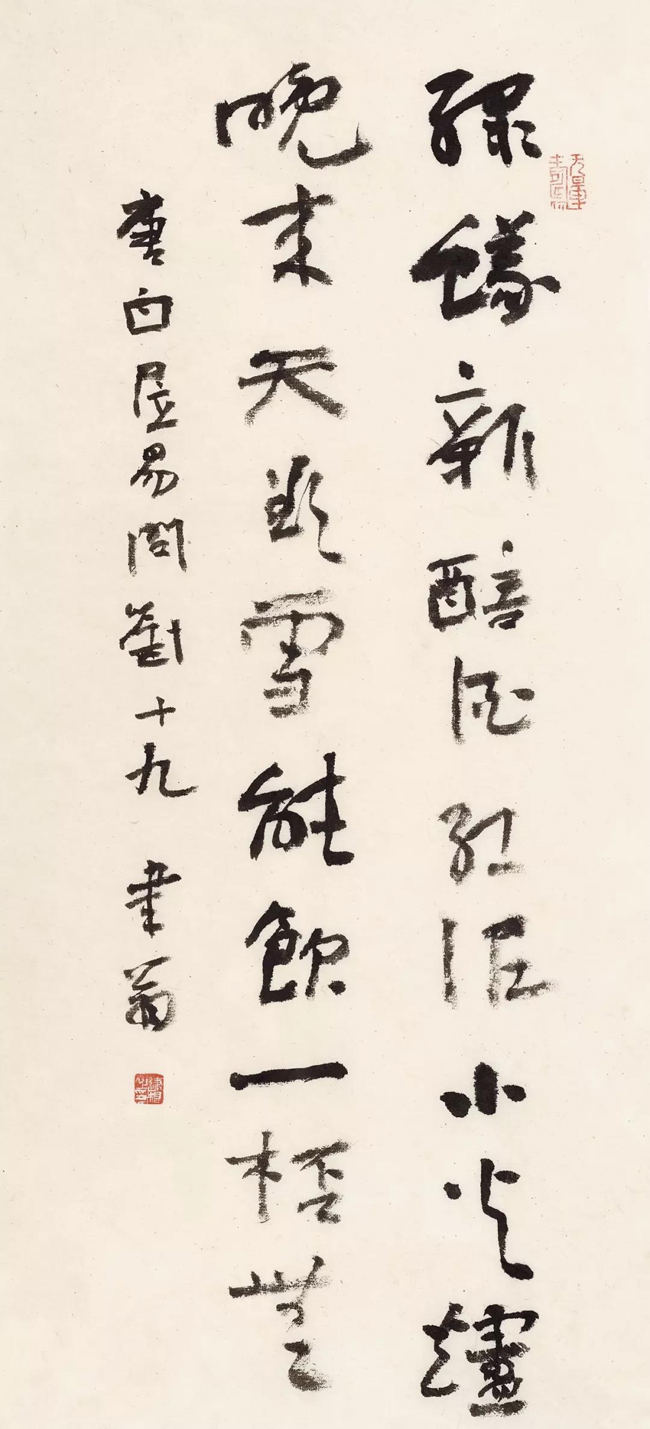 綠蟻新醅酒紅泥小火爐
晚來天欲雪能飲一桮無
唐白居易問劉十九 聿翁